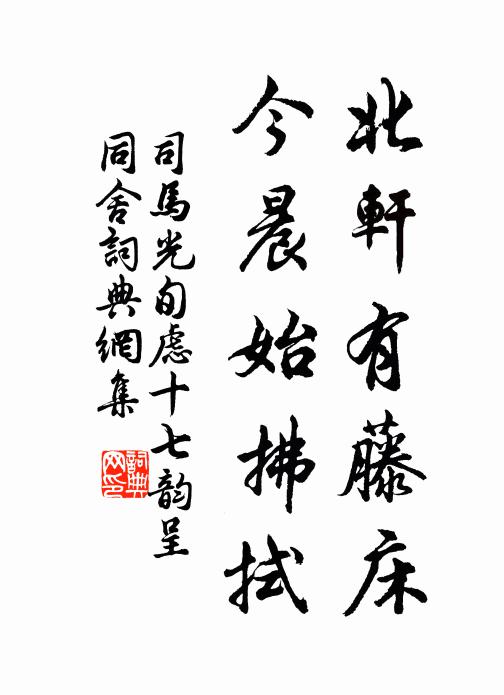 北軒有藤床
今晨始拂拭
司馬光旬慮十七韵呈
同舍詞典網集
詞典
网印